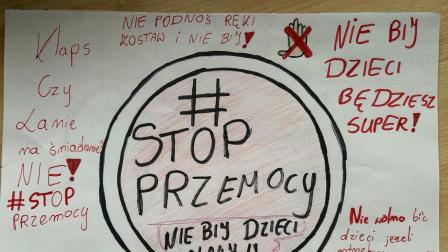 NIE PODNOŚ RĘKI
ZOSTAW I NIE BIJ!
Klaps
Czy
Lanie
na śniadanie?
NIE!
#STOP
PRZEMOCY
#
STOP
PRZEMOCY
NIE BIJ DZIECI
NIE BIJ
DZIECI
BĘDZIESZ
SUPER!
Nie wolno bić
dzieci jeżeli